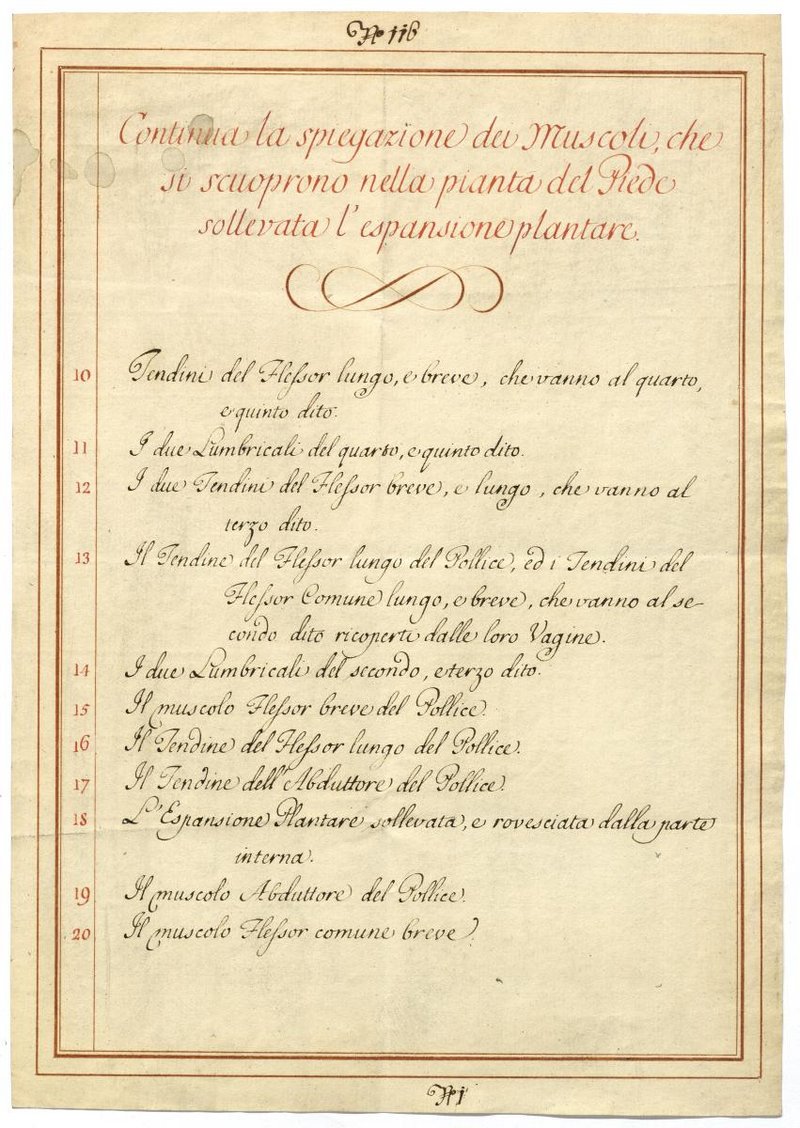 No 116
Continua la spiegazione dei Muscoli, che
si scuoprono nella pianta del Piede
sollevata l'espansione plantare.
10 Tendini del Flessor lungo, e breve, che vanno al quarto,
e quinto dito.
11 I due Lumbricali del quarto, e quinto dito.
12 I due Tendini del Flessor breve, e lungo, che vanno al
terzo dito.
13 Il Tendine del Flessor lungo del Pollice, ed i Tendini del
Flessor Comune lungo, e breve, che vanno al se-
condo dito ricoperti dalle loro Vagine.
14 I due Lumbricali del secondo, e terzo dito.
15 Il muscolo Flessor breve del Pollice.
16 Il Tendine del Flessor lungo del Pollice.
17 Il Tendine dell'Abduttore del Pollice.
18 L'Espansione Plantare sollevata, e rovesciata dalla parte
interna.
19 Il muscolo Abduttore del Pollice.
20 Il muscolo Flessor comune breve.